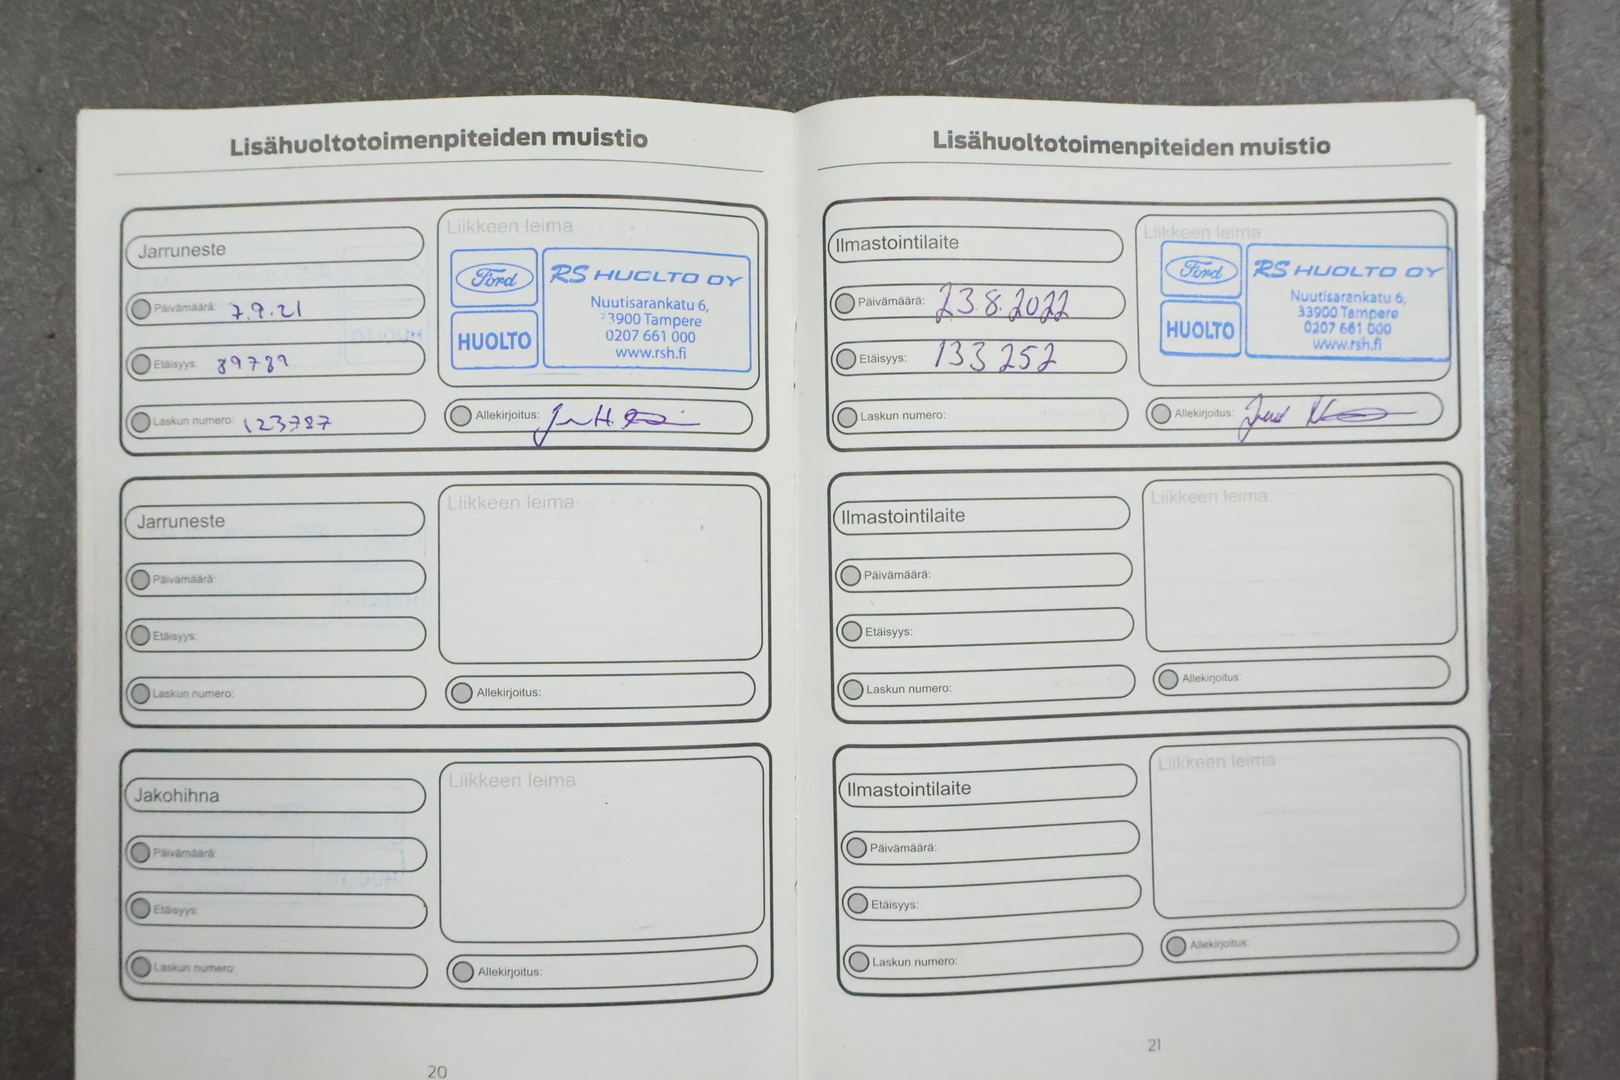 Lisähuoltotoimenpiteiden muistio
Jarruneste
Päivämäärä: 7.9.21
Etäisyys: 89789
Laskun numero: 123787
Liikkeen leima
Ford
HUOLTO
RS HUOLTO OY
Nuutisarankatu 6,
33900 Tampere
0207 661 000
www.rsh.fi
Allekirjoitus:
Jarruneste
Päivämäärä:
Etäisyys:
Laskun numero:
Liikkeen leima
Allekirjoitus:
Jakohihna
Päivämäärä:
Etäisyys:
Laskun numero:
Liikkeen leima
Allekirjoitus:
20
Lisähuoltotoimenpiteiden muistio
Ilmastointilaite
Päivämäärä: 23.8.2022
Etäisyys: 133 252
Laskun numero:
Liikkeen leima
Ford
HUOLTO
RS HUOLTO OY
Nuutisarankatu 6,
33900 Tampere
0207 661 000
www.rsh.fi
Allekirjoitus:
Ilmastointilaite
Päivämäärä:
Etäisyys:
Laskun numero:
Liikkeen leima
Allekirjoitus:
Ilmastointilaite
Päivämäärä:
Etäisyys:
Laskun numero:
Liikkeen leima
Allekirjoitus:
21